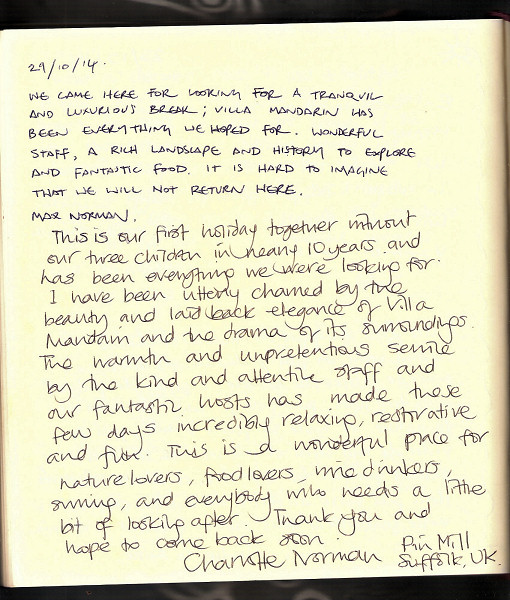 29/10/14.
WE CAME HERE FOR LOOKING FOR A TRANQUIL
AND LUXURIOUS BREAK; VILLA MANDARIN HAS
BEEN EVERYTHING WE HOPED FOR. WONDERFUL
STAFF, A RICH LANDSCAPE AND HISTORY TO EXPLORE
AND FANTASTIC FOOD. IT IS HARD TO IMAGINE
THAT WE WILL NOT RETURN HERE.
MAX NORMAN.
This is our first holiday together without
our three children in nearly 10 years and
has been everything we were looking for.
I have been utterly charmed by the
beauty and laid back elegance of Villa
Mandarin and the drama of its surroundings.
The warmth and unpretentious service
by the kind and attentive staff and
our fantastic hosts has made these
few days incredibly relaxing, restorative
and fun. This is a wonderful place for
nature lovers, food lovers, wine drinkers,
and everybody who needs a little
bit of looking after. Thank you and
hope to come back soon.
Charlotte Norman Pin Mill
Suffolk, UK.